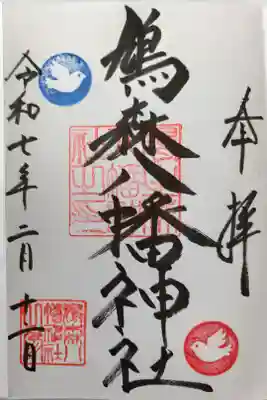 奉拝
鳩森八幡神社
令和七年二月十一日